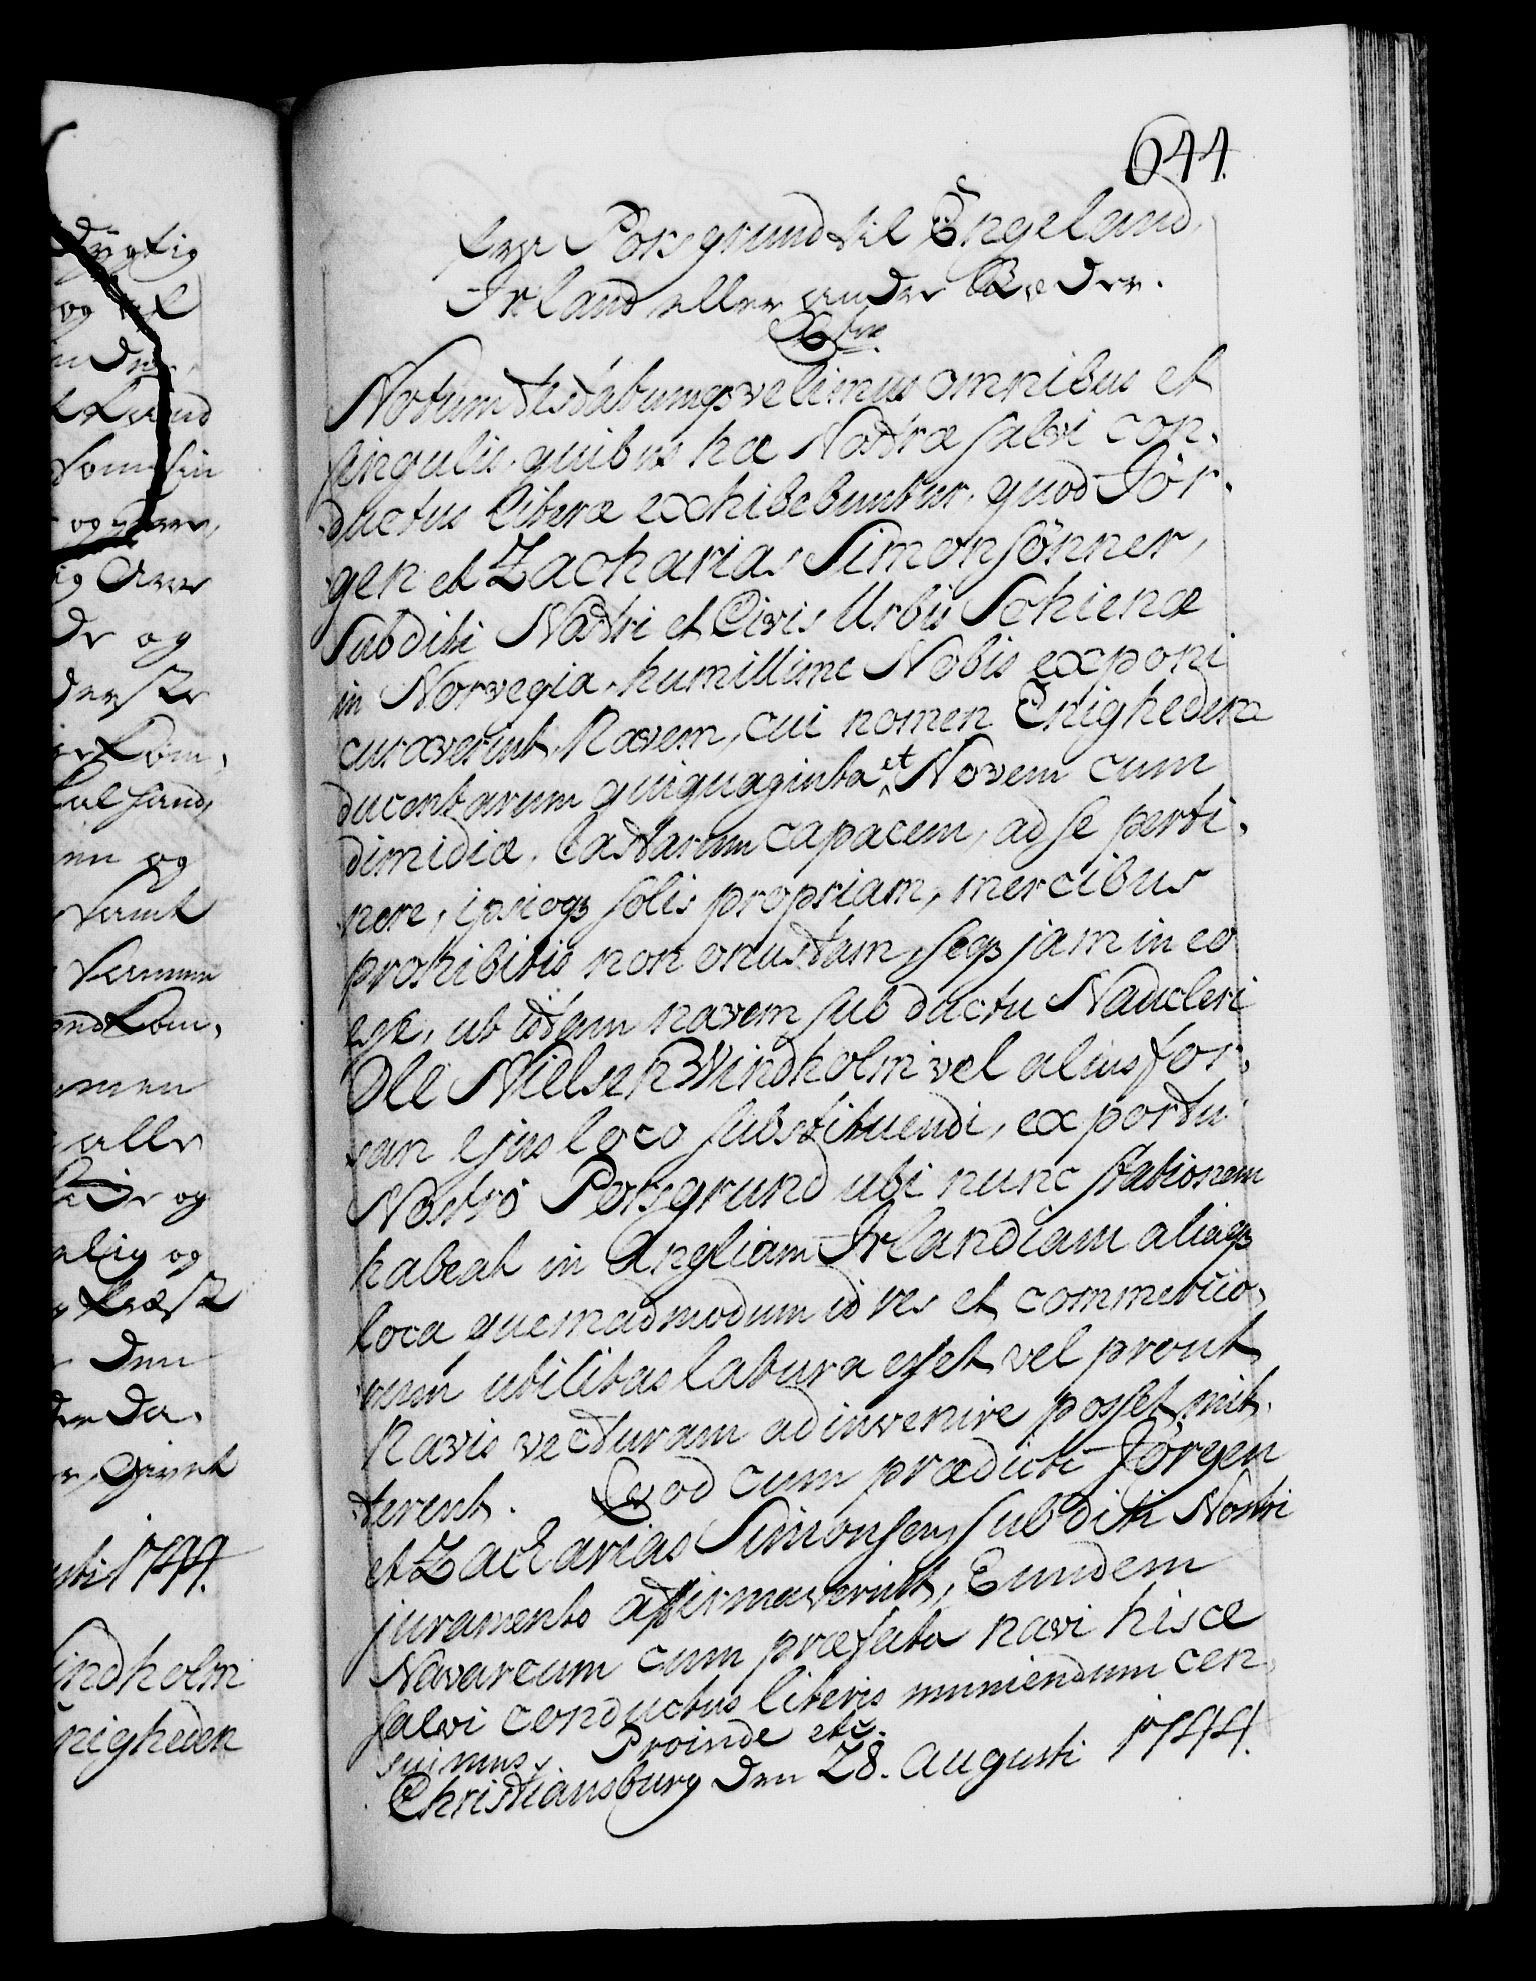 644.
fra Porsgrund til Engeland,
Irland eller andre Stæder.
Notum testatumqz velimus omnibus et
singulis, quibus hæ Nostræ salvi con-
ductus literæ exhibebuntur, quod Jör-
gen et Zacharias Simonsönner,
Subditi Nostri et Civis Urbis Schienæ
in Norvegia, humillime Nobis exponi
curaverint, Navem, cui nomen Enigheden
ducentarum quinquaginta et Novem cum
dimidiæ, lastarum capacem, ad se perti-
nere, ipsisqz solis propriam, mercibus
prohibitis non onustam, seqz jam in eo
esse, ut istam navem sub ductu Naucleri
Ole Nielsen Windholm vel alius for-
san ejus loco substituendi, ex portu
Nostro Porsgrund ubi nunc stationem
habeat in Angliam Irlandiam aliaqz
loca quemadmodum id res et commercio-
rum utilitas latura esset, vel prout
Navis vecturam adinvenire posset, mit-
terent. Quod cum prædicti Jörgen
et Zacharias Simonsen, Subditi Nostri
juramento affirmaverint, Eundem
Navarcum cum præfata navi hisce
salvi conductus literis muniendum cen-
suimus, Proinde etc.
Christiansburg den 28. Augusti 1744.
dygtig
og
ig
de og
en og
samt
alle
og
den
1744.
indholm
nigheden